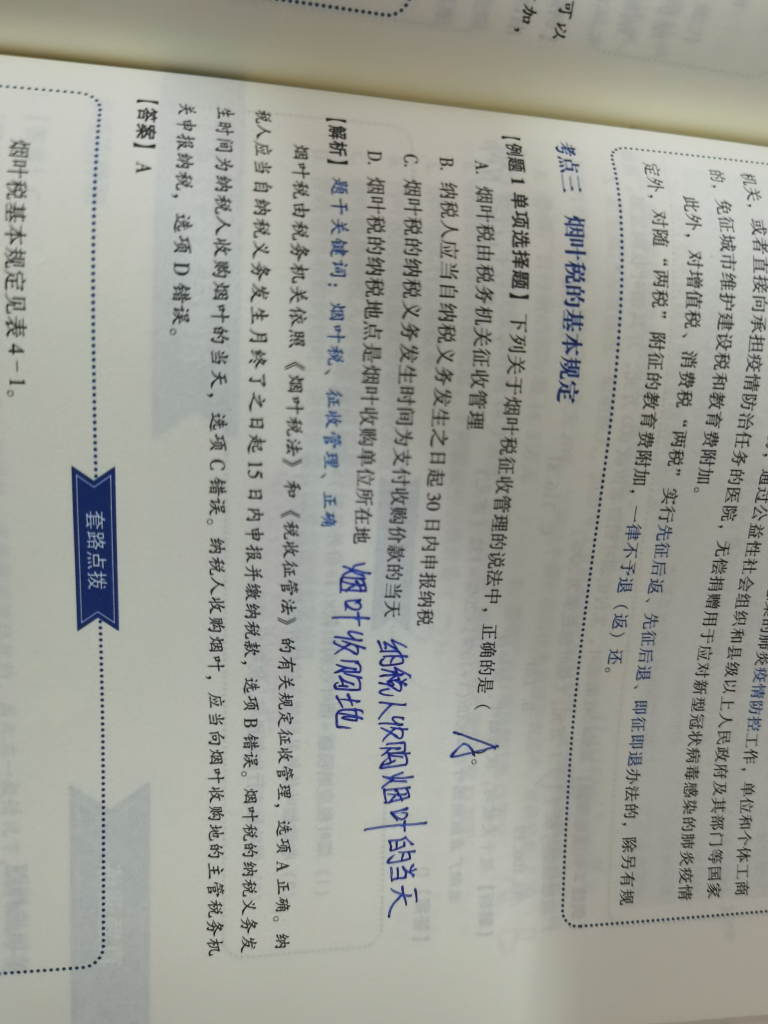 可以
加，
通过公益性社会组织和县级以上人民政府及其部门等国家
机关，或者直接向承担疫情防治任务的医院，无偿捐赠用于应对新型冠状病毒感染的肺炎疫情
的，免征城市维护建设税和教育费附加。
此外，对增值税、消费税“两税”实行先征后返、先征后退、即征即退办法的，除另有规
定外，对随“两税”附征的教育费附加，一律不予退（返）还。
考点三 烟叶税的基本规定
【例题1 单项选择题】下列关于烟叶税征收管理的说法中，正确的是（ A 。
A. 烟叶税由税务机关征收管理
B. 纳税人应当自纳税义务发生之日起30日内申报纳税
C. 烟叶税的纳税义务发生时间为支付收购价款的当天 纳税人收购烟叶的当天
D. 烟叶税的纳税地点是烟叶收购单位所在地 烟叶收购地
【解析】题干关键词：烟叶税、征收管理、正确
烟叶税由税务机关依照《烟叶税法》和《税收征管法》的有关规定征收管理，选项A正确。纳
税人应当自纳税义务发生月终了之日起15日内申报并缴纳税款，选项B错误。烟叶税的纳税义务发
生时间为纳税人收购烟叶的当天，选项C错误。纳税人收购烟叶，应当向烟叶收购地的主管税务机
关申报纳税，选项D错误。
【答案】A
套路点拨
烟叶税基本规定见表4-1。